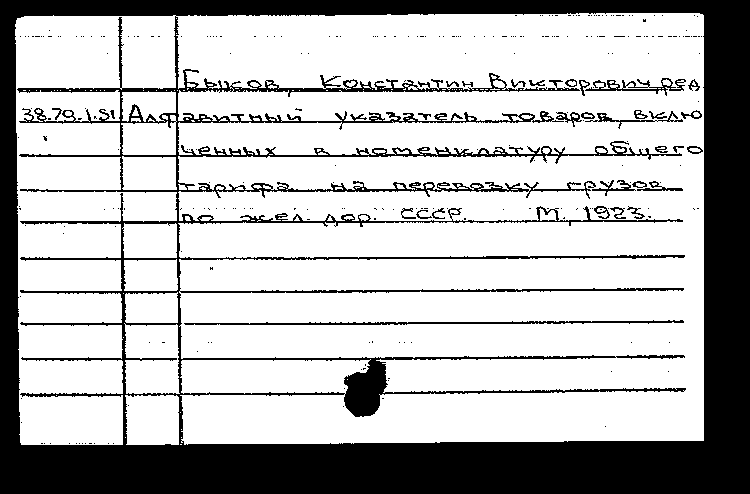 Быков, Константин Викторович, ред.
38.70.1.51 Алфавитный указатель товаров, вклю
ченных в номенклатуру общего
тарифа на перевозку грузов
по жел. дор. СССР. М., 1923.